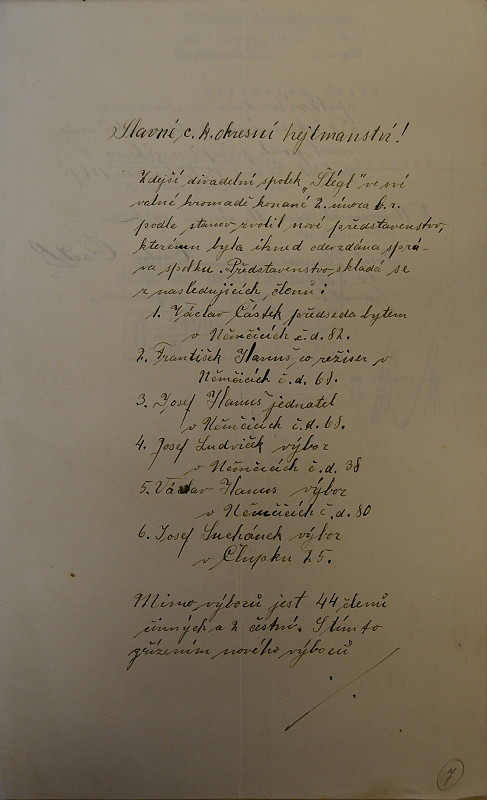 Slavné, c. k. okresní hejtmanství!
Zdejší divadelní spolek „Šlégl" ve své
valné hromadě konané 2. února b. r.
podle stanov zvolil nové představenstvo,
kterému byla ihned odevzdána sprá-
va spolku. Představenstvo skládá se
z nasledujících členů:
1. Václav Částek předseda bytem
v Němčicích č. d. 82.
2. František Hanuš, co režiser v
Němčicích č. d. 68.
3. Josef Hanuš jednatel
v Němčicích č. d. 68.
4. Josef Ludvíček výbor
v Němčicích č. d. 38
5. Václav Hanus výbor
v Němčicích č. d. 80
6. Josef Suchánek výbor
v Člupku 25.
Mimo výborů jest 44 členů
činných a 2 čestní. S tímto
zřízením nového výborů
7